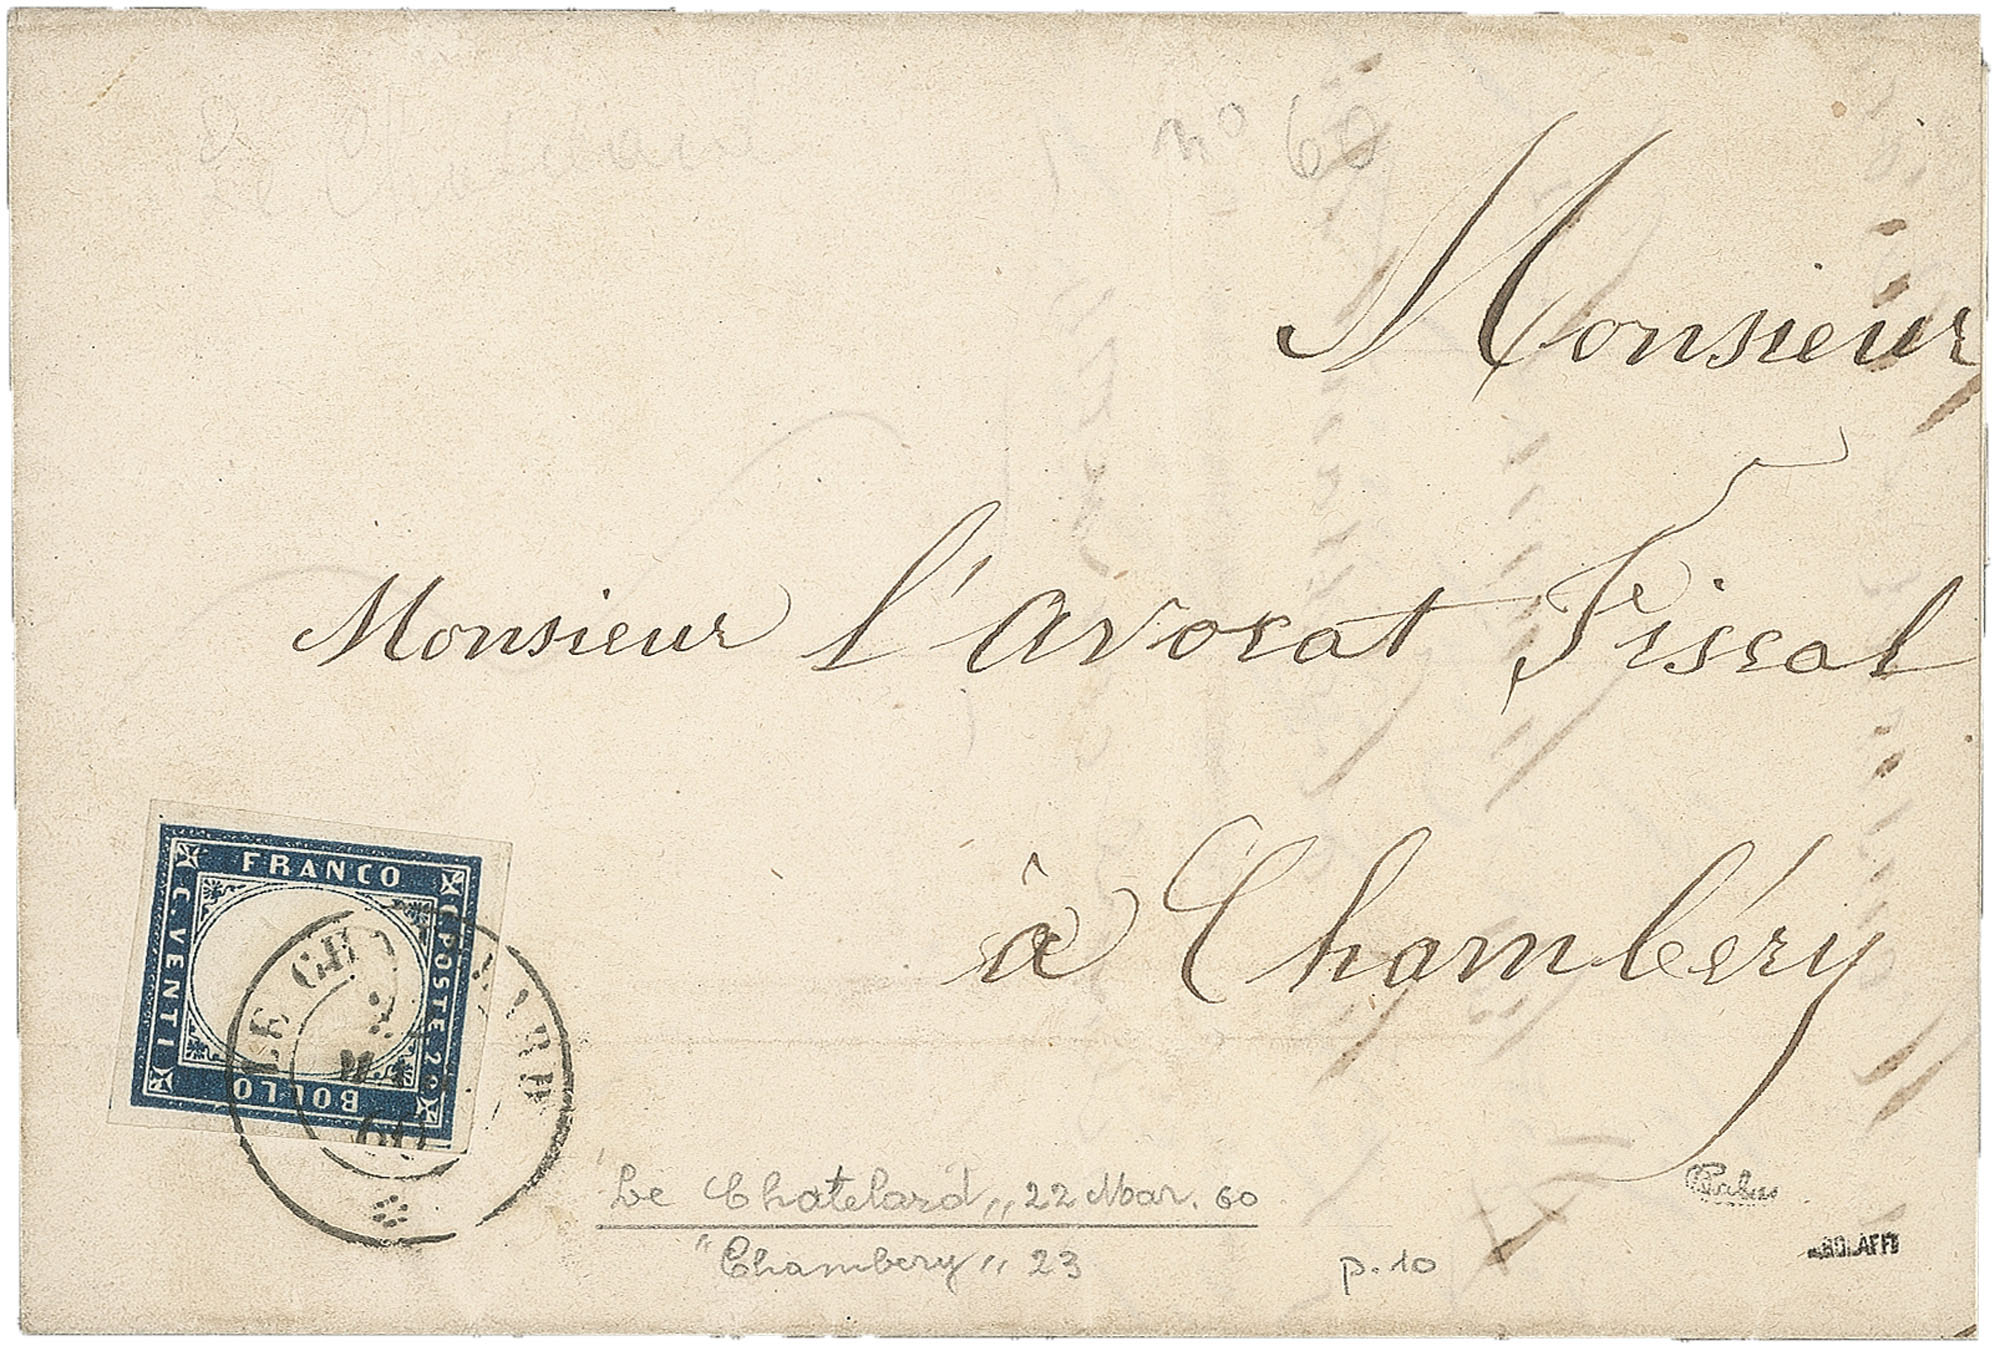 Le Chatelard
n° 60
Monsieur
Monsieur l'avocat Fiscal
à Chambéry
FRANCO
C. POSTE 20
BOLLO
C. VENTI
LE CH ARD
60
"Le Chatelard,, 22 Mar. 60
"Chambery,, 23
p. 10